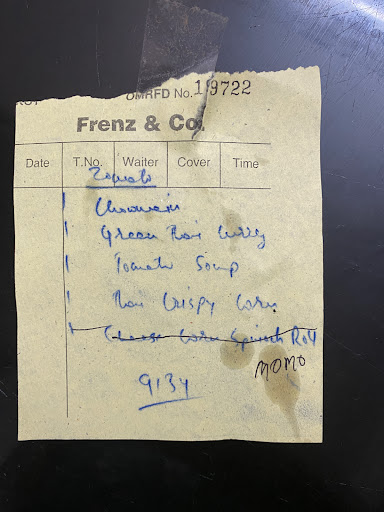 OMRFD No. 19722
Frenz & Co.
Date T.No. Waiter Cover Time
Zomato
1 Chowmein
1 Green Thai Curry
1 Tomato Soup
1 Thai Crispy Corn
1 Cheese Corn Spinach Roll
MOMO
9134